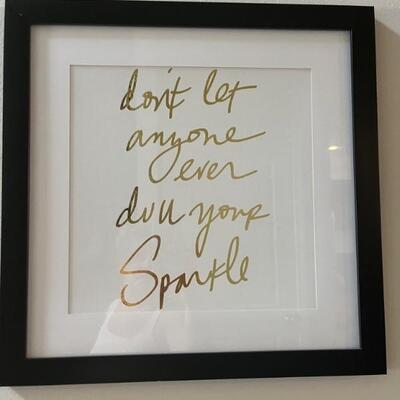 don't let
anyone
ever
dull your
Sparkle